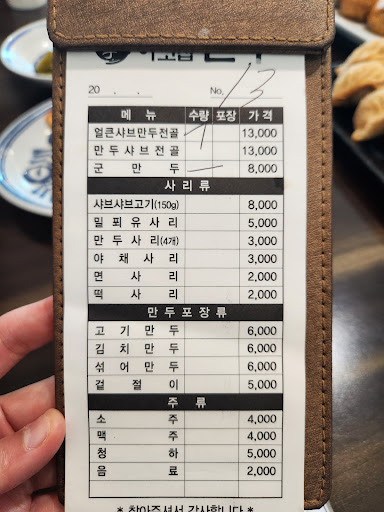 만두
20 . . . No. 13
메 뉴 수량 포장 가 격
얼큰샤브만두전골 13,000
만 두 샤 브 전 골 13,000
군 만 두 8,000
사 리 류
샤브샤브고기(150g) 8,000
밀 푀 유 사 리 5,000
만 두 사 리(4개) 3,000
야 채 사 리 3,000
면 사 리 2,000
떡 사 리 2,000
만 두 포 장 류
고 기 만 두 6,000
김 치 만 두 6,000
섞 어 만 두 6,000
겉 절 이 5,000
주 류
소 주 4,000
맥 주 4,000
청 하 5,000
음 료 2,000
* 찾아주셔서 감사합니다 *